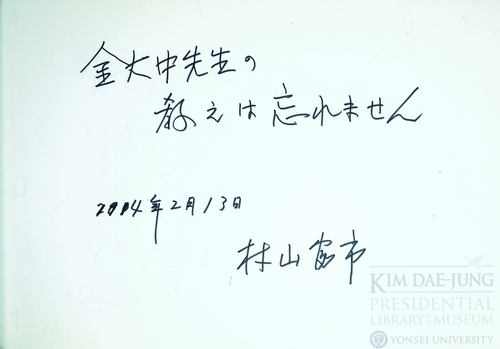 金大中先生の
教えは忘れません
2014年2月13日
村山富市
KIM DAE-JUNG
PRESIDENTIAL
LIBRARY & MUSEUM
YONSEI UNIVERSITY